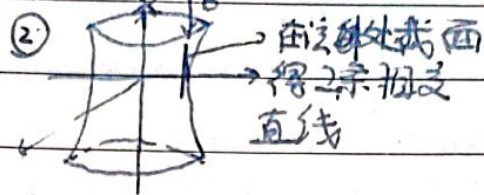 ②
在该处截面
得2条相交
直线